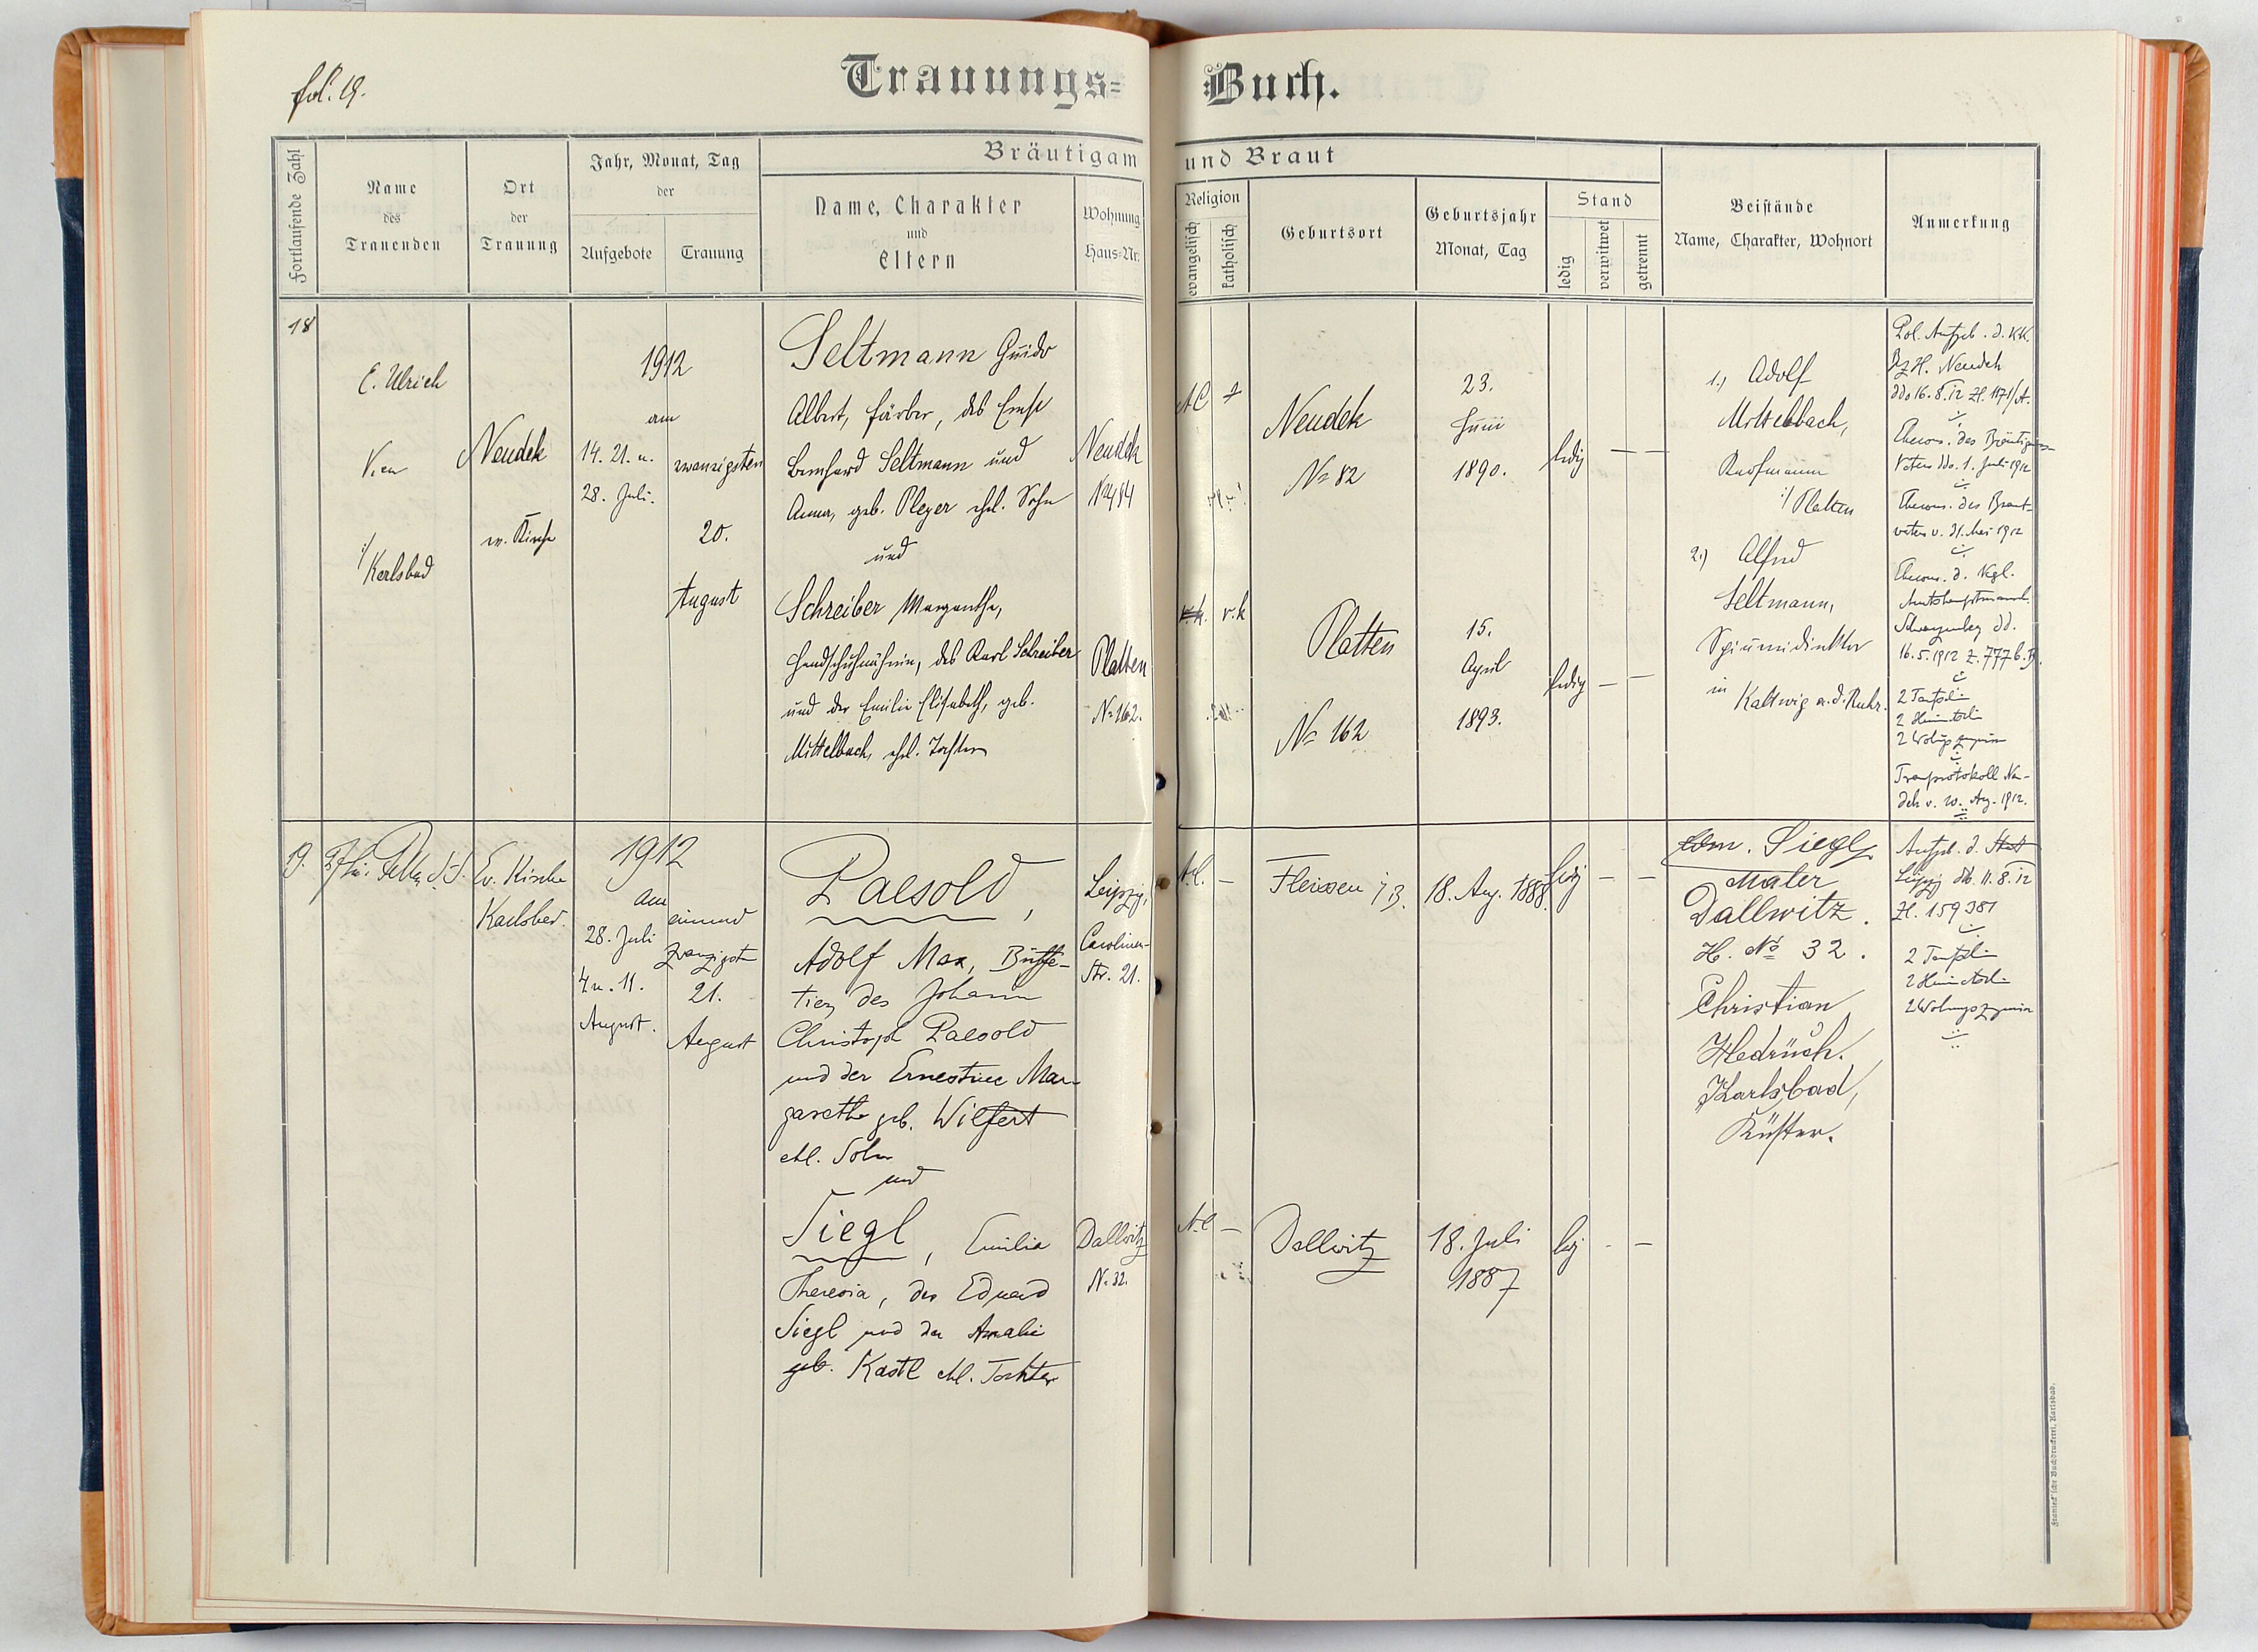 fol. 19.
Trauungs=Buch.
Fortlaufende Zahl
Name
des
Trauenden
Ort
der
Trauung
Jahr, Monat, Tag
der
Aufgebote
Trauung
Bräutigam und Braut
Name, Charakter
und
Eltern
Wohnung
Haus=Nr.
Religion
evangelisch
katholisch
Geburtsort
Geburtsjahr
Monat, Tag
Stand
ledig
verwitwet
getrennt
Beistände
Name, Charakter, Wohnort
Anmerkung
18
E. Ulrich
Karlsbad
Neudek
ev. Kirche
1912
am
14. 21. u.
28. Juli.
zwanzigsten
20.
August
Seltmann Guido
Albert, Färber, des Ernst
Bernhard Seltmann und
Anna, geb. Pleyer ehel. Sohn
und
Schreiber Margarethe,
Handschuhnäherin, des Karl Schreiber
und der Emilie Elisabeth, geb.
Mittelbach, ehel. Tochter
Neudek
Nº 484
Platten
Nº 162.
AC
r.k
Neudek
Nº 82
Platten
Nº 162
23.
Juni
1890.
15.
April
1893.
ledig — —
ledig — —
1.) Adolf
Mittelbach,
Kaufmann
Platten
2.) Alfred
Seltmann,
in Kettwig a. d. Ruhr.
Pol. Aufgeb. d. KK.
BzH. Neudek
ddo 16.8.12 Zl. 1171/A.
Ehecons. des Bräutigams
Vaters ddo. 1. Juli 1912
Ehecons. des Braut-
vaters v. 31. Mai 1912
Ehecons. d. Kgl.
Schwarzenberg dd.
2 Taufsch.
Trauprotokoll Neu-
dek v. 20. Aug. 1912.
19.
Ev. Kirche
Karlsbad.
1912
am
28. Juli
4 u. 11.
August.
einund
zwanzigsten
21.
August
Paesold,
Adolf Max, Büffe-
tier, des Johann
Christoph Paesold
und der Ernestine Mar-
garethe geb. Wilfert
ehl. Sohn
und
Siegl, Emilie
Theresia, des Eduard
Siegl und der Amalie
geb. Kastl ehl. Tochter
Leipzig,
Carolinen-
Str. 21.
Dallwitz
N. 32.
A.C. —
A.C —
Fleissen i/B.
Dallwitz
18. Aug. 1888.
18. Juli
1887
ledig — —
ledig - —
Siegl,
Maler
Dallwitz.
H. Nº 32.
Christian
Karlsbad,
Küster.
Aufgeb. d. Stadt
Leipzig dd. 11.8.12
Zl. 159381
2 Taufsch.
2 Heimatsch.
2 Wohnungszeugnisse
Franieck'sche Buchdruckerei, Karlsbad.